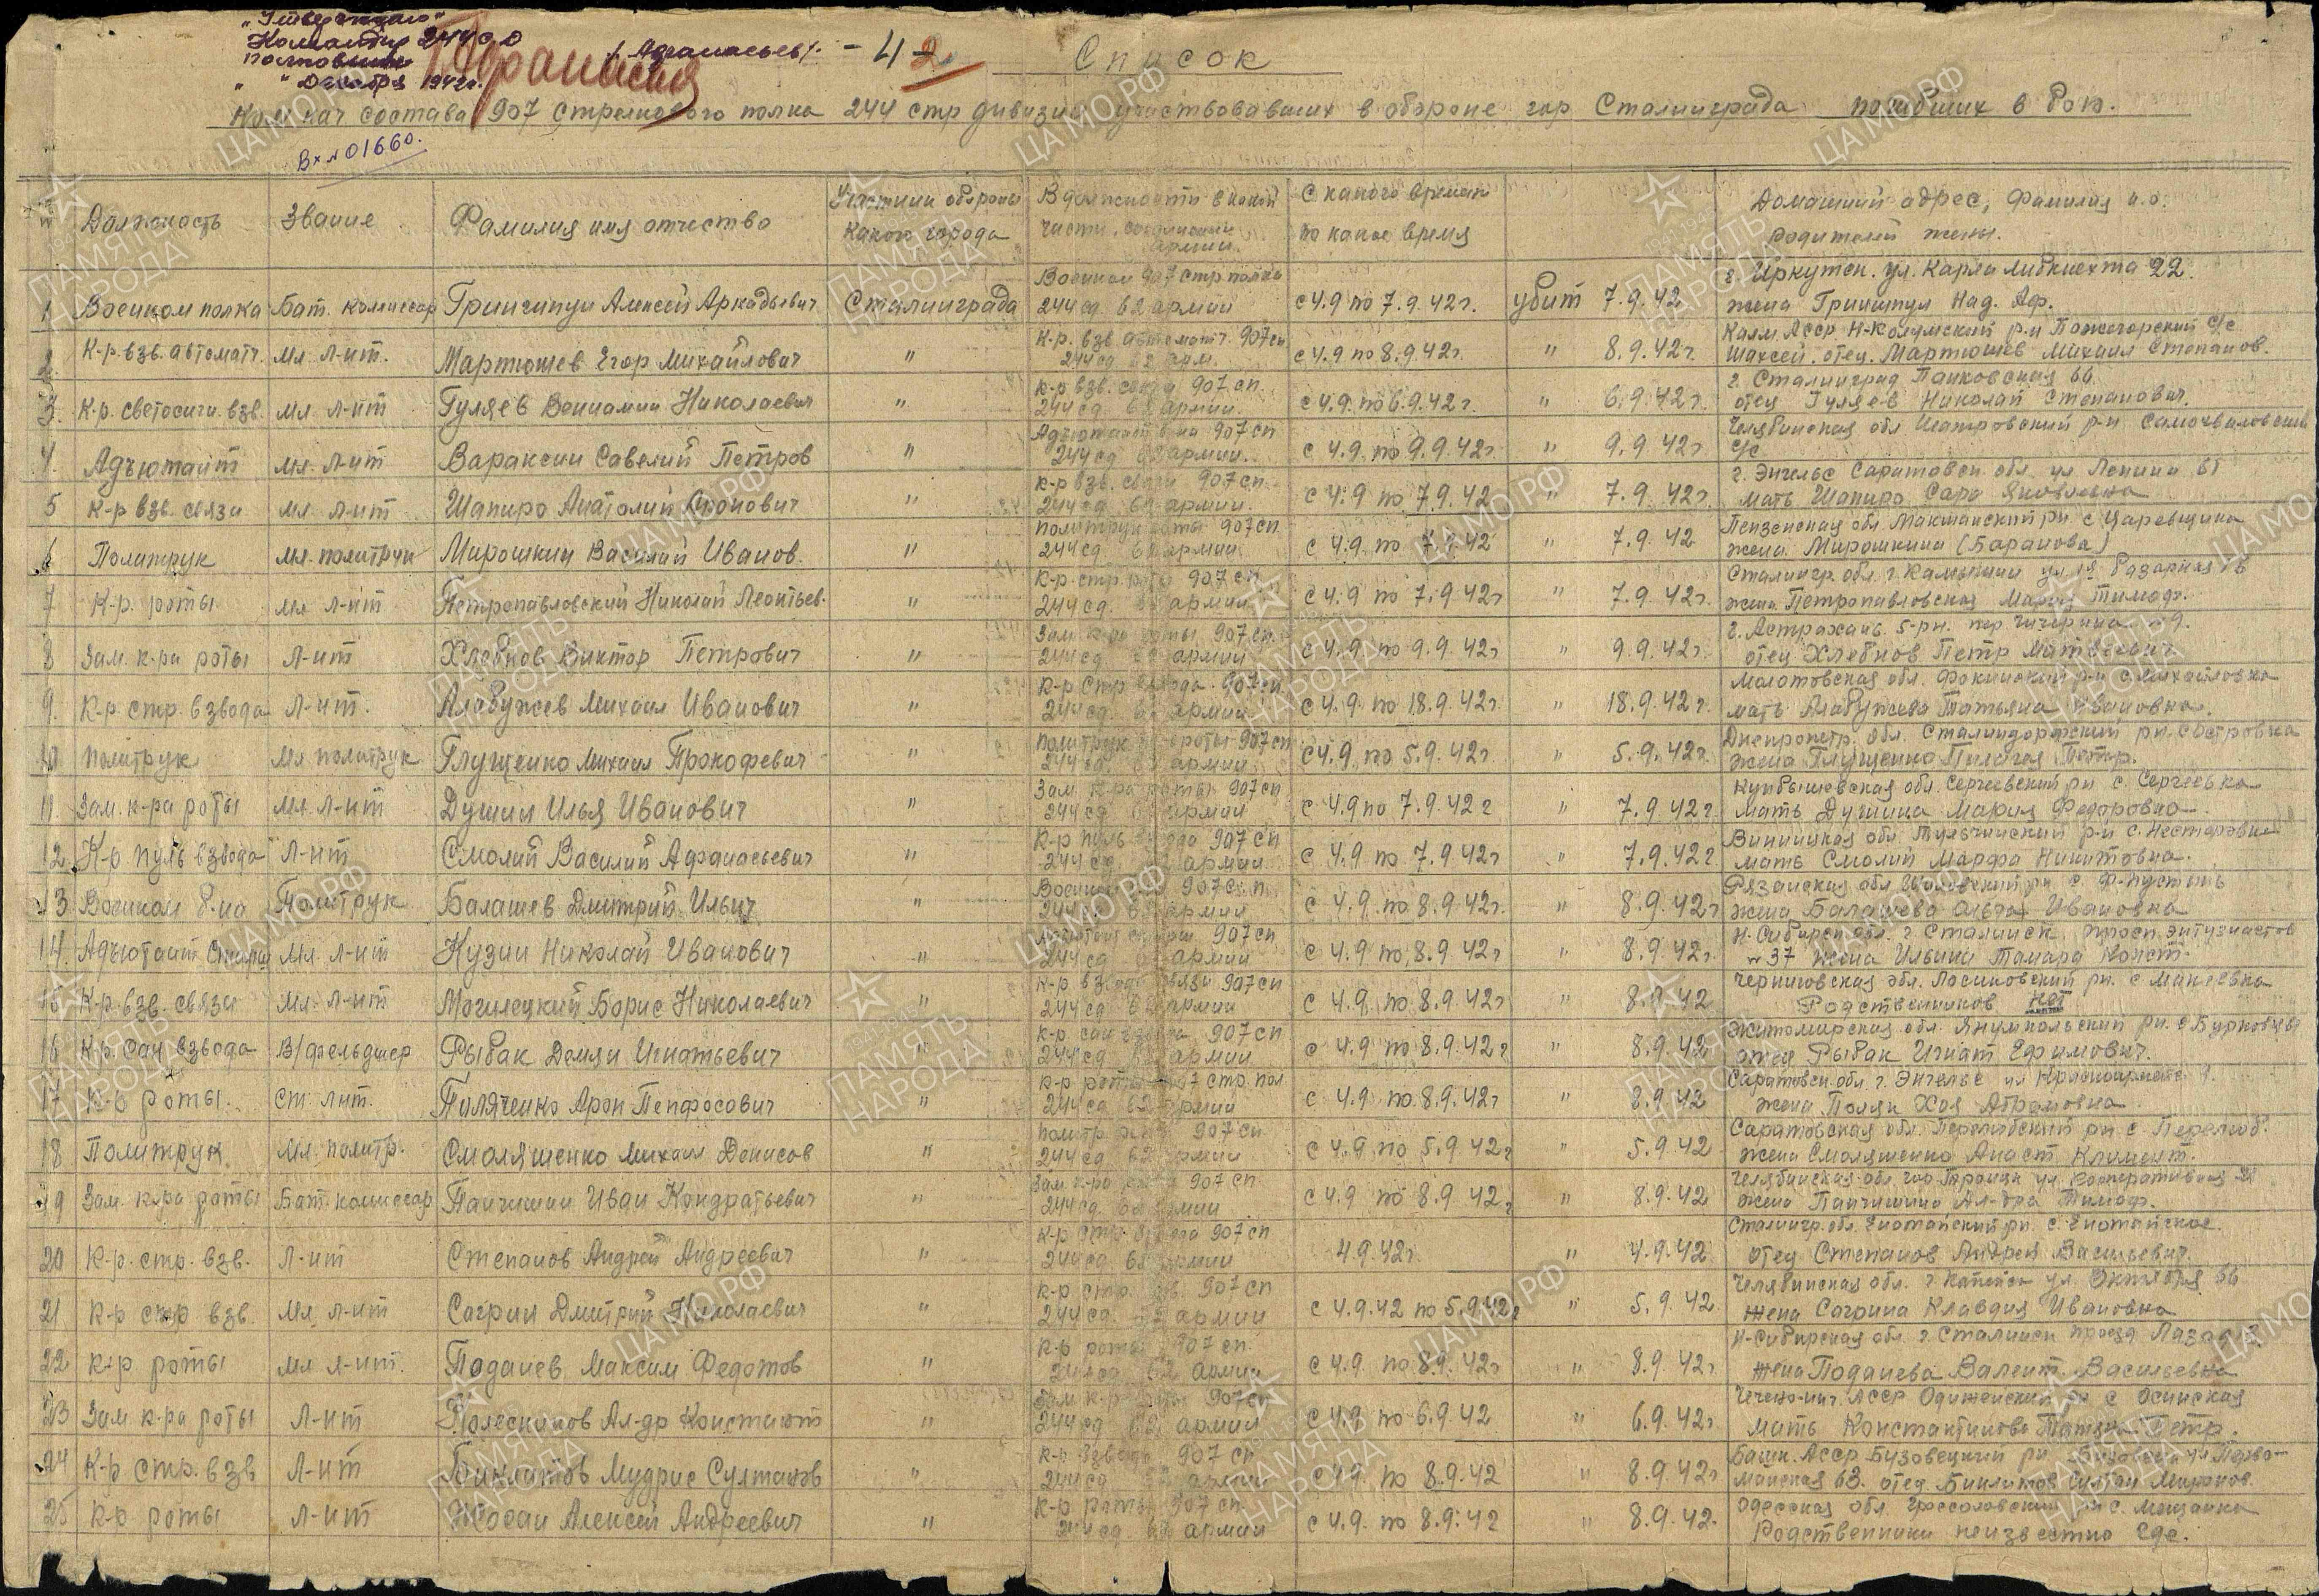 „Утверждаю“
Командир 244 сд
Полковник /Афанасьев/.
" " Декабря 1942г.
- 42
Список
Ком нач состава 907 Стрелкового полка 244 стр дивизии участвовавших в обороне гор Сталинграда погибших в бою.
Вх № 01660.
Должность Звание Фамилия имя отчество Участник обороны какого города В должности в какой части, соединении армии. С какого времени по какое время Домашний адрес, Фамилия и.о. родителей жены.
1 Военком полка Бат. комиссар Гринштун Алексей Аркадьевич Сталинграда Военком 907 стр полка 244 сд 62 армии с 4.9 по 7.9.42г. убит 7.9.42 г. Иркутск. ул. Карла Либкнехта 22.
жена Гринштун Над. Аф.
2. К-р взв. автомат. мл. л-нт. Мартюшев Егор Михайлович " К-р. взв автомат. 907 сп 244 сд 62 арм. с 4.9 по 8.9.42г. " 8.9.42г. Пожегорский с/с
отец. Мартюшев Михаил Степанов.
3. К-р. светосигн. взв. мл. л-нт Гуляев Вениамин Николаевич " К-р взв. связи 907 сп. 244 сд. 62 армии. с 4.9. по 6.9.42г. " 6.9.42г. г. Сталинград
отец Гуляев Николай Степанович.
4. Адъютант мл. л-нт Вараксин Савелий Петров " Адъютант б-на 907 сп 244 сд 62 армии. с 4.9. по 9.9.42г. " 9.9.42г Челябинская обл Шатровский р-н Самохваловский
с/с
5 К-р взв. связи мл. л-нт Шапиро Анатолий " К-р взв. связи 907 сп. 244 сд 62 армии. с 4.9 по 7.9.42 " 7.9.42г. г. Энгельс Саратовск. обл ул Ленина 61
мать Шапиро Сара Яковлевна
6 Политрук мл. политрук Мирошкин Василий Иванов. " Политрук роты 907 сп 244 сд 62 армии с 4.9. по 7.9.42 " 7.9.42 Пензенская обл. с Царевщина
жена. Мирошкина (Баранова)
7 К-р. роты мл л-нт Петропавловский Николай Леонтьев. " К-р. стр. роты 907 сп 244 сд. 62 армии с 4.9 по 7.9.42г " 7.9.42г. Сталингр. обл. г. Камышин
жена Петропавловская Мария Тимоф.
8 Зам. к-ра роты Л-нт Хлебнов Виктор Петрович " Зам. к-ра роты 907 сп 244 сд 62 армии с 4.9 по 9.9.42г " 9.9.42г. г. Астрахань. 5-рн. пер Чичерина 9.
отец Хлебнов Петр Матвеевич
9. К-р. стр. взвода Л-нт. Алабужев Михаил Иванович " К-р стр взвода 907 сп 244 сд 62 армии с 4.9. по 18.9.42г. " 18.9.42г. Молотовская обл. Фокинский р-н с Михайловка
мать Алабужева Татьяна Ивановна.
10 Политрук Мл политрук Глущенко Михаил Прокофевич " Политрук роты 907 сп 244 сд. 62 армии с 4.9. по 5.9.42г. " 5.9.42г. Днепропетр. обл. Сталиндорфский рн. с Островка
жена Глущенко Пелагея Петр.
11. Зам. к-ра роты Мл. л-нт Душин Илья Иванович " Зам. к-ра роты 907 сп 244 сд 62 армии с 4.9 по 7.9.42г " 7.9.42г. Куйбышевская обл. Сергеевский рн с. Сергеевка
мать Душина Мария Федоровна
12. К-р пуль взвода Л-нт Смолий Василий Афанасьевич " К-р пуль взвода 907 сп 244 сд. 62 армии с 4.9 по 7.9.42г " 7.9.42г. Винницкая обл. Тульчинский р-н с. Нестеровка
мать Смолий Марфа Никитовна.
13 Военком б-на Политрук Балашев Дмитрий Ильич " Военком б-на 907 сп. 244 сд 62 армии с 4.9. по 8.9.42г. " 8.9.42г Рязанская обл. рн с.
жена Балашева Ольга Ивановна
14. Адъютант Старш Мл. л-нт Кузин Николай Иванович " Адъютант старш 907 сп 244 сд 62 армии с 4.9 по 8.9.42г " 8.9.42г. Н-Сибирск обл. г Сталинск, просп. Энтузиастов
№ 37 жена Ильина Тамара Конст.
15 К-р взв. связи мл. л-нт Могилецкий Борис Николаевич " К-р взвода связи 907 сп 244 сд 62 армии с 4.9. по 8.9.42г " 8.9.42 Черниговская обл. Лосиновский рн. с Макеевка
Родственников нет
16 К-р. сан взвода В/фельдшер Рыбак Демян Игнатьевич " К-р сан взвода 907 сп 244 сд 62 армии с 4.9 по 8.9.42г " 8.9.42 Житомирская обл. Янушпольский рн. с Бурковцы
отец Рыбак Игнат Ефимович.
17 К-р роты. Ст. л-нт. Арон " К-р роты 907 стр. пол. 244 сд 62 армии с 4.9 по 8.9.42г " 8.9.42 Саратовск. обл. г. Энгельс ул Красноармейс.
жена Хая Абрамовна
18 Политрук Мл. политр. Смоляшенко Михаил Денисов " Политр роты 907 сп 244 сд 62 армии с 4.9 по 5.9.42г " 5.9.42 Саратовская обл. Перелюбский рн. с Перелюб.
жена Смоляшенко Анаст. Климент.
19 Зам. к-ра роты Бат. комиссар Панчишин Иван Кондратьевич " Зам к-ра роты 907 сп 244 сд. 62 армии с 4.9 по 8.9.42г " 8.9.42 Челябинская обл. гор Троицк ул. Кооперативная
жена Панчишина Ал-дра Тимоф.
20 К-р. стр. взв. Л-нт Степанов Андрей Андреевич " К-р стр. взвода 907 сп 244 сд 62 армии 4.9.42г. " 4.9.42 Сталингр. обл. Енотаевский рн. с. Енотаевское.
отец Степанов Андрей Васильевич.
21 К-р стр взв. Мл. л-нт Сагрин Дмитрий Николаевич " К-р стр. взв. 907 сп 244 сд. 62 армии с 4.9.42 по 5.9.42г " 5.9.42 Челябинская обл. г. Копейск ул. Октября 56
жена Сагрина Клавдия Ивановна
22 К-р роты мл л-нт. Поданев Максим Федотов " К-р роты 907 сп 244 сд 62 армии с 4.9. по 8.9.42г " 8.9.42г Н-Сибирская обл. г. Сталинск проезд
жена Поданева Валент. Васильевна
23 Зам к-ра роты Л-нт Колесников Ал-др Константт " Зам к-р роты 907 сп 244 сд 62 армии с 4.9 по 6.9.42 " 6.9.42г. Чечено-инг. АССР рн с Осинская
мать Константинова Татьяна Петр.
24 К-р стр. взв Л-нт Биклитов Мудрис Султанов " К-р взвода 907 сп 244 сд 62 армии с 4.9. по 8.9.42 " 8.9.42г Башк. АССР рн ул Перво-
майская 63. отец Биклитов Султан
25 К-р роты Л-нт Жосан Алексей Андреевич " К-р роты 907 сп. 244 сд 62 армии с 4.9. по 8.9.42 " 8.9.42. Одесская обл. Гроссоловский рн с. Мещанка
Родственники неизвестно где.
ЦАМО.РФ
ПАМЯТЬ НАРОДА